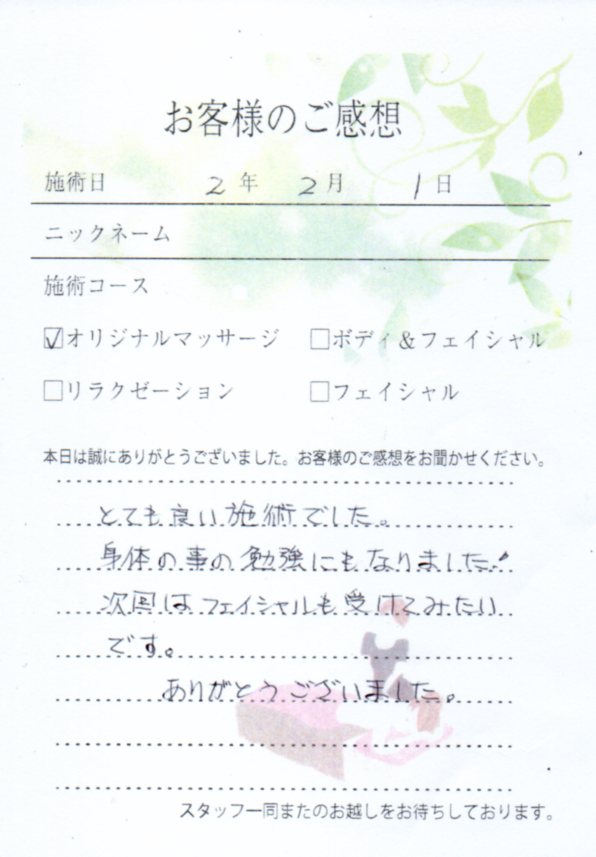 お客様のご感想
施術日 2年 2月 1日
ニックネーム
施術コース
☑オリジナルマッサージ □ボディ&フェイシャル
□リラクゼーション □フェイシャル
本日は誠にありがとうございました。お客様のご感想をお聞かせください。
とても良い施術でした。
身体の事の勉強にもなりました!
次回はフェイシャルも受けてみたい
です。
ありがとうございました。
スタッフ一同またのお越しをお待ちしております。